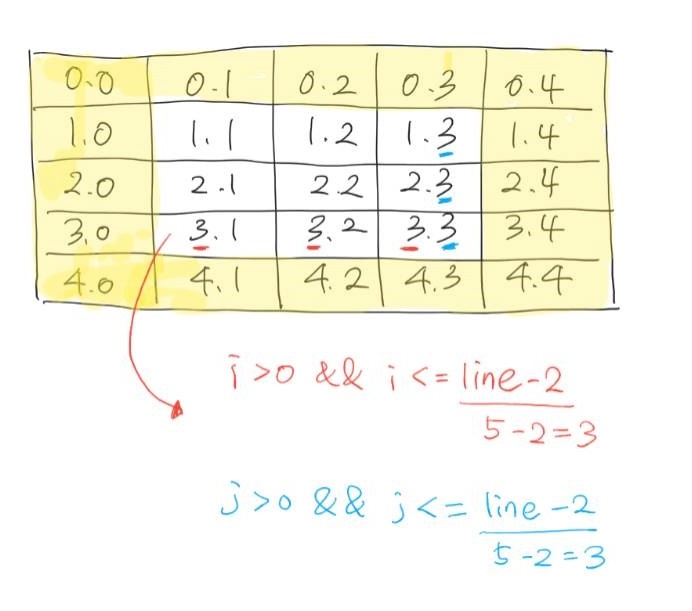 0.0 0.1 0.2 0.3 0.4
1.0 1.1 1.2 1.3 1.4
2.0 2.1 2.2 2.3 2.4
3.0 3.1 3.2 3.3 3.4
4.0 4.1 4.2 4.3 4.4
i>0 && i<= line-2
5-2=3
j>0 && j<= line-2
5-2=3